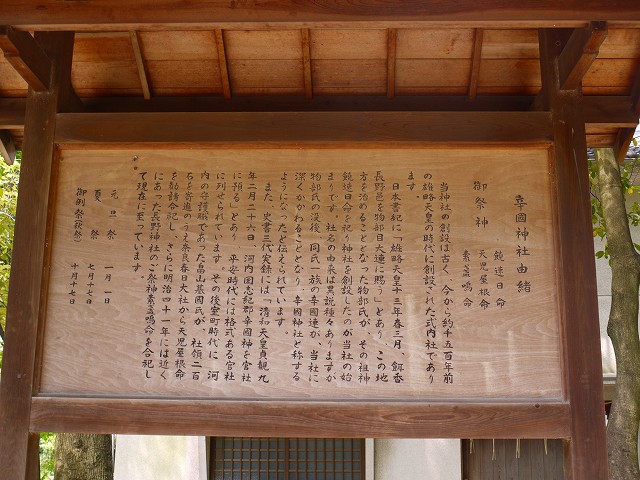 辛國神社由緒
御祭神
饒速日命
天児屋根命
素盞鳴命
当神社の創設は古く、今から約千五百年前
の雄略天皇の時代に創設された式内社であり
ます。
日本書紀に「雄略天皇十三年春三月、餌香
長野邑を物部目大連に賜う」とあり、この地
方を治めることとなった物部氏が、その祖神
饒速日命を祀り神社を創設したのが当社の始
まりです。社名の由来は異説種々ありますが
物部氏の没後、同氏一族の辛國連が、当社に
深くかかわることとなり、辛國神社と称する
ようになったと伝えられています。
また、史書三代実録には「清和天皇貞観九
年二月二十六日、河内国志紀郡辛國神を官社
に預る」とあり、平安時代には格式ある官社
に列せられています。その後室町時代に、河
内の守護職であった畠山基國氏が、社領二百
石を寄進のうえ奈良春日大社から天児屋根命
を勧請合祀し、さらに明治四十一年には近く
にあった長野神社のご祭神素盞鳴命を合祀し
て現在に至っています。
元旦祭 一月一日
夏祭 七月十七日
御例祭(秋祭) 十月十七日